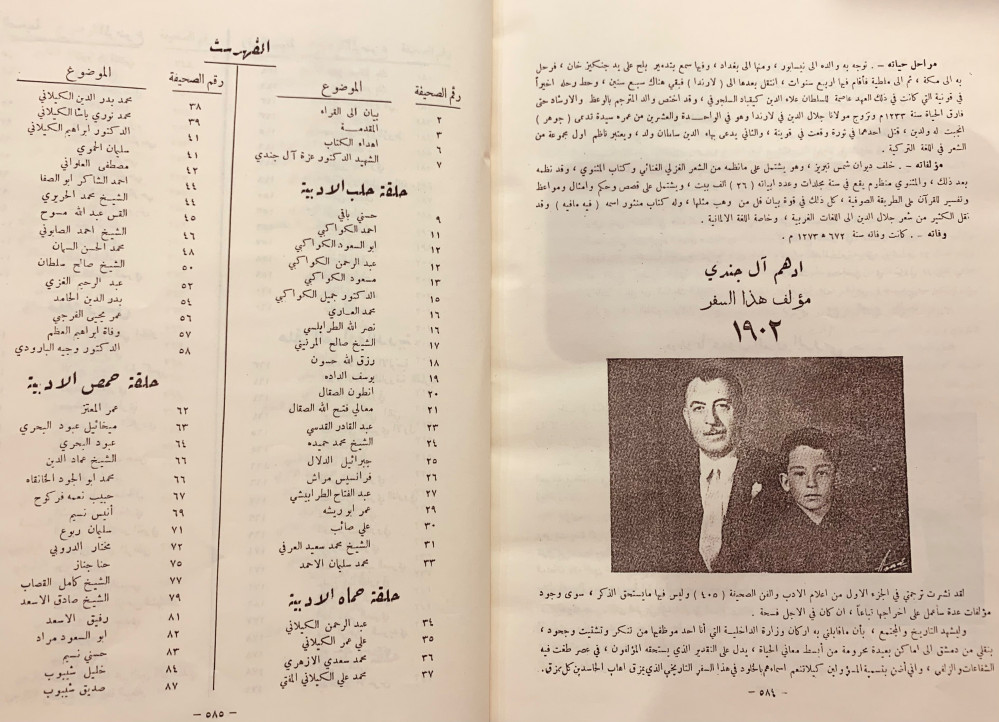 مراحل حياته . - توجه به والده الى نيسابور ، ومنها الى بغداد ، وفيها سمع بتدمير بلخ على يد جنكيز خان ، فرحل
به الى مكة ، ثم الى ملطية فأقام فيها اربع سنوات ، انتقل بعدها الى ( لارندا ) فبقي هناك سبع سنين ، وحط رحله اخيراً
في قونية التي كانت في ذلك العهد عاصمة للسلطان علاء الدين كيقباد السلجوقي ، وقد اختص والد المترجم بالوعظ والارشاد حتى
فارق الحياة سنة ١٢٣٣م وتزوج مولانا جلال الدين في لارندا وهو في الواحدة والعشرين من عمره سيدة تدعى ( جوهر )
انجبت له ولدين ، قتل احدهما في ثورة وقعت في قونية ، والثاني يدعى بهاء الدين سلطان ولد ، ويعتبر ناظم اول مجموعة من
الشعر في اللغة التركية .
مؤلفاته . - خلف ديوان شمس تبريز ، وهو يشتمل على مانظمه من الشعر الغزلي الغنائي وكتاب المثنوي ، وقد نظمه
بعد ذلك ، والمثنوي منظوم يقع في ستة مجلدات وعدد ابياته ( ٢٦ ) الف بيت ، ويشتمل على قصص وحكم وامثال ومواعظ
وتفسير للقرآن على الطريقة الصوفية ، كل ذلك في قوة بيان قل من وهب مثلها ، وله كتاب منثور اسمه ( فيه مافيه ) وقد
نقل الكثير من شعر جلال الدين الى اللغات الغربية ، وخاصة اللغة الالمانية .
وفاته . - كانت وفاته سنة ٦٧٢ ه ١٢٧٣ م .
ادهم آل جندي
مؤلف هذا السفر
١٩٠٢
لقد نشرت ترجمتي في الجزء الاول من اعلام الادب والفن الصحيفة ( ٤٠٥ ) وليس فيها مايستحق الذكر ، سوى وجود
مؤلفات عدة سأعمل على اخراجها تباعاً ، ان كان في الاجل فسحة .
وليشهد التاريخ والمجتمع ، بأن ماقابلني به اركان وزارة الداخلية التي أنا احد موظفيها من تنكر وتشتيت وجحود ،
بنقلي من دمشق الى اماكن بعيدة محرومة من أبسط معاني الحياة ، يدل على التقدير الذي يستحقه المؤلفون ، في عصر طغت فيه
الشفاعات والزلفى ، واني أدين بتسمية المسؤولين كيلا تنعم اسماءهم الخلود في هذا السفر التاريخي الذي يمزق اهاب الحاسدين كل ممزق .
- ٥٨٤ -
الفهرست
رقم الصحيفة الموضوع
٢ بيان الى القراء
٣ المقدمة
٦ اهداء الكتاب
٧ الشهيد الدكتور عزة آل جندي
حلقة حلب الادبية
٩ حسني باقي
١١ احمد الكواكبي
١٢ ابو السعود الكواكبي
١٢ عبد الرحمن الكواكبي
١٣ مسعود الكواكبي
١٥ الدكتور جميل الكواكبي
١٦ محمد العماري
١٦ نصر الله الطرابلسي
١٧ الشيخ صالح المرتيني
١٨ رزق الله حسون
١٩ يوسف الداده
٢٠ انطون الصقال
٢١ معالي فتح الله الصقال
٢٣ عبد القادر القدسي
٢٤ الشيخ محمد حميده
٢٥ جبرائيل الدلال
٢٦ فرانسيس مراش
٢٧ عبد الفتاح الطرابيشي
٢٩ عمر ابو ريشه
٣٠ علي صائب
٣١ الشيخ محمد سعيد العرفي
٣٣ محمد سليمان الاحمد
حلقة حماه الادبية
٣٤ عبد الرحمن الكيلاني
٣٥ علي عمر الكيلاني
٣٦ محمد سعدي الازهري
٣٧ محمد علي الكيلاني المفتي
رقم الصحيفة الموضوع
٣٨ محمد بدر الدين الكيلاني
٣٩ محمد نوري باشا الكيلاني
٤١ الدكتور ابراهيم الكيلاني
٤١ سليمان الحموي
٤٢ مصطفى العلواني
٤٤ احمد الشاكر ابو الصفا
٤٤ الشيخ محمد الحريري
٤٥ القس عبد الله مسوح
٤٦ الشيخ احمد الصابوني
٤٨ محمد الحسن السمان
٥٠ الشيخ صالح سلطان
٥٢ عبد الرحيم الغزي
٥٤ بدر الدين الحامد
٥٦ عمر يحيى الفرجي
٥٧ وفاة ابراهيم العظم
٥٨ الدكتور وجيه البارودي
حلقة حمص الادبية
٦٢ عمر المعتز
٦٣ ميخائيل عبود البحري
٦٤ عبود البحري
٦٦ الشيخ عماد الدين
٦٦ محمد ابو الجود الخانقاه
٦٧ حبيب نعمه فركوح
٦٩ أنيس نسيم
٧١ سليمان ربوع
٧٢ مختار الدروبي
٧٥ حنا جناز
٧٧ الشيخ كامل القصاب
٧٩ الشيخ صادق الاسعد
٨١ رفيق الاسعد
٨٢ ابو السعود مراد
٨٣ حسني نسيم
٨٤ خليل شيبوب
٨٧ صديق شيبوب
- ٥٨٥ -